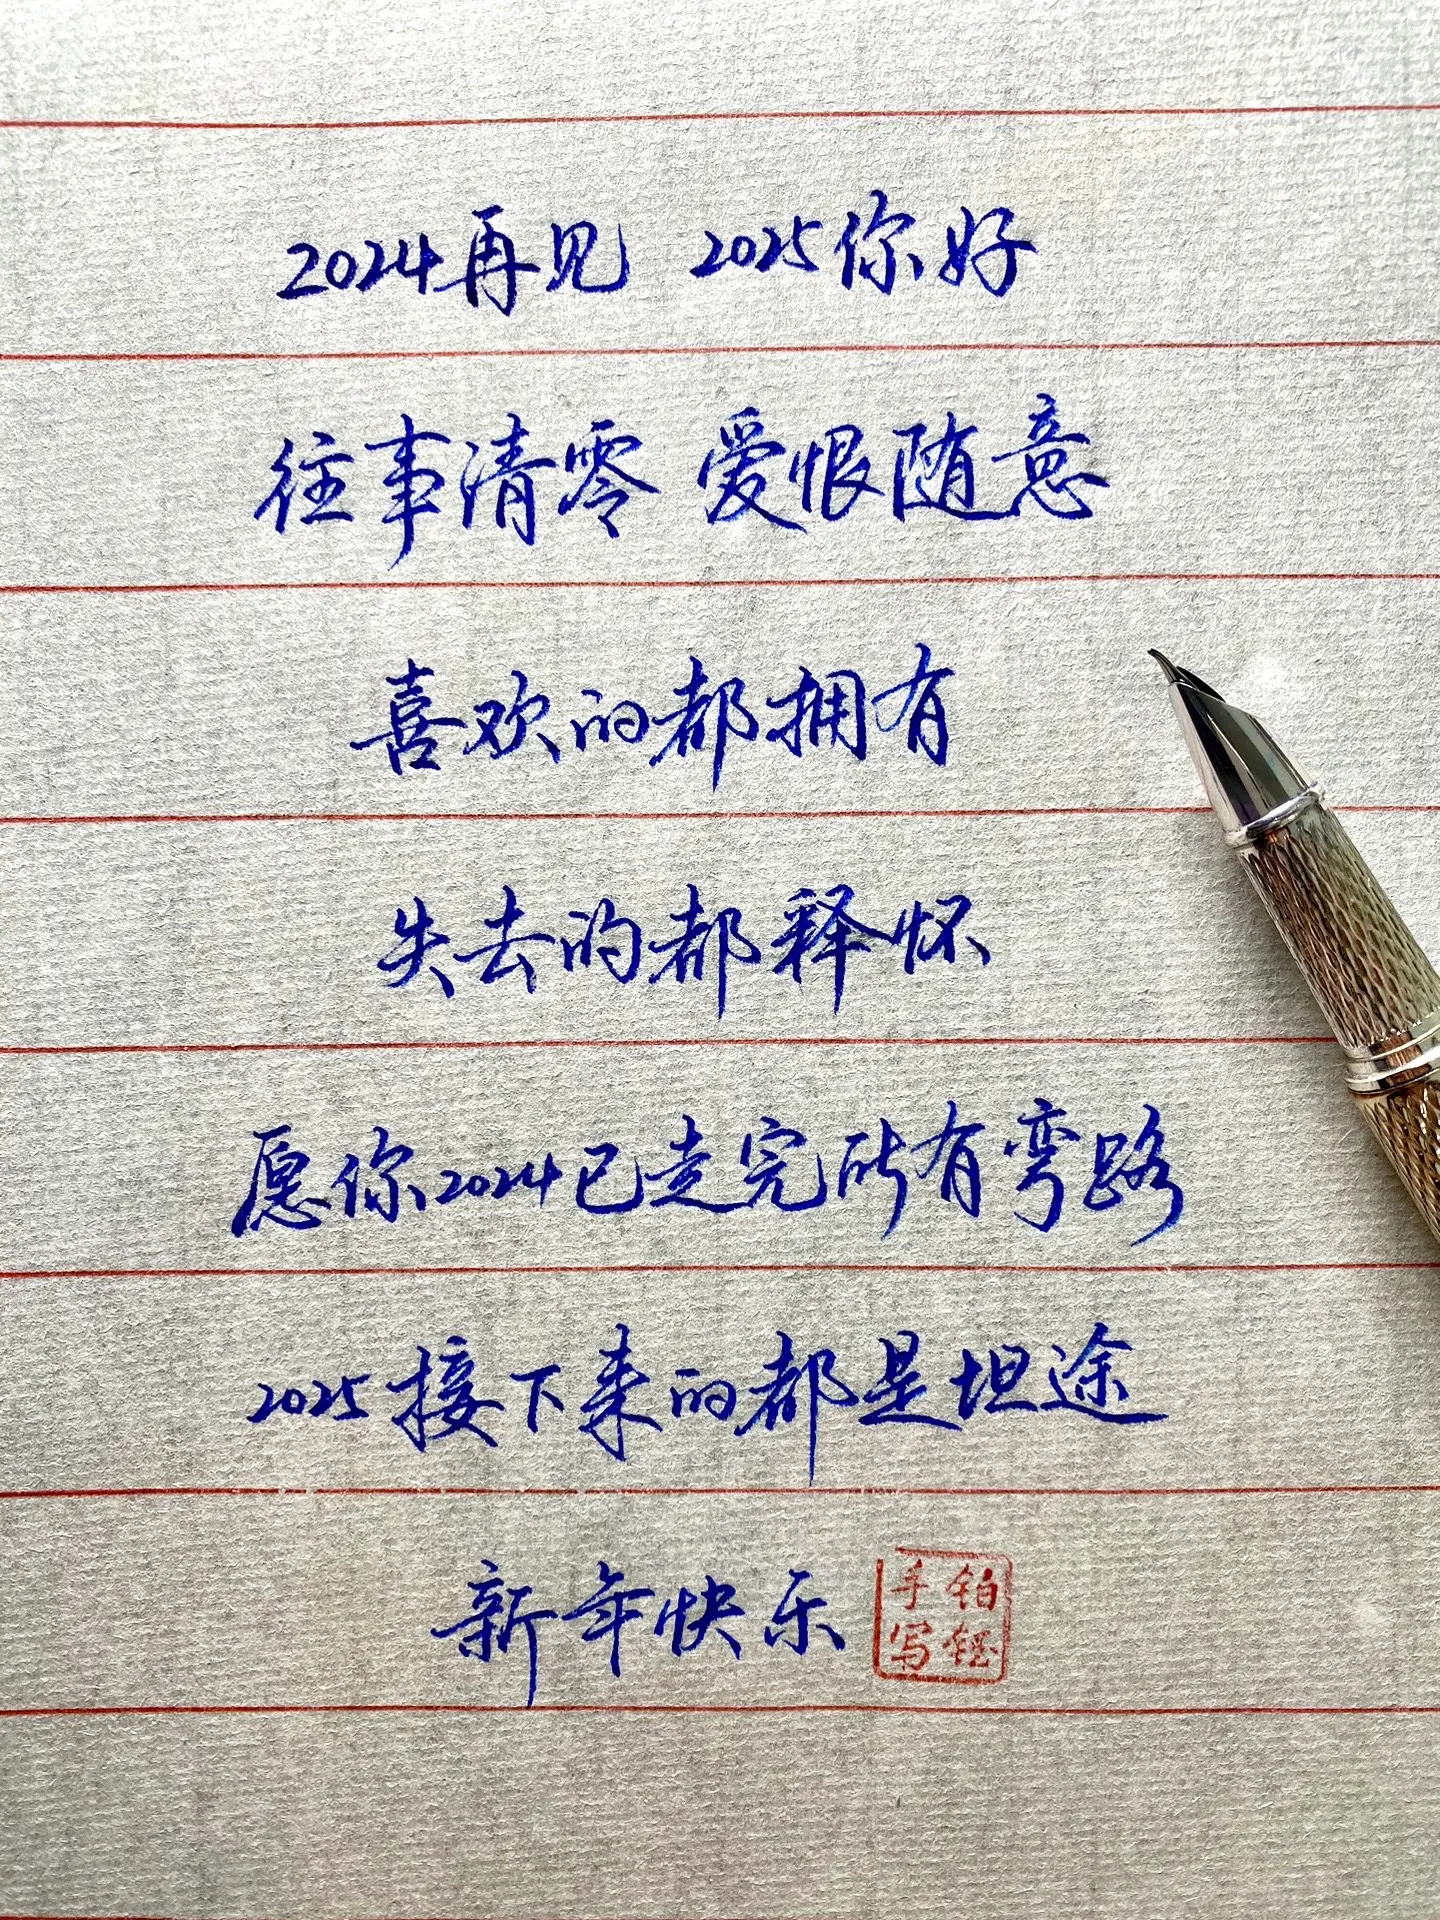 2024再见 2025你好
往事清零 爱恨随意
喜欢的都拥有
失去的都释怀
愿你2024已走完所有弯路
2025接下来的都是坦途
新年快乐
铂
手写